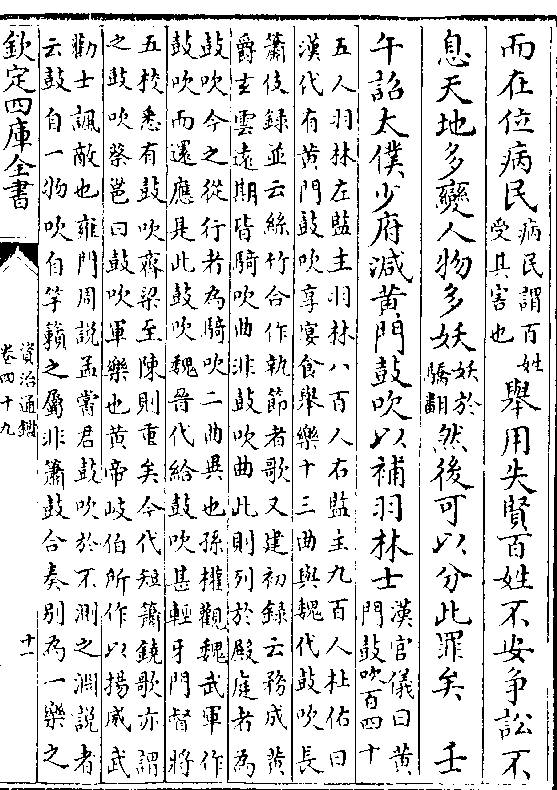 而在位病民病民謂百姓受其害也舉用失賢百姓不安争訟不
息天地多變人物多妖妖於驕翻然後可以分此罪矣　壬
午詔太僕少府減黄門鼓吹以補羽林士漢官儀曰黄門鼓吹百四十
五人羽林左監主羽林八百人右監主九百人杜佑曰
漢代有黄門鼓吹享宴食舉樂十三曲與魏代鼓吹長
簫伎録並云絲竹合作執節者歌又建初録云務成黄
爵𤣥雲遠期皆騎吹曲非鼓吹曲此則列於殿庭者為
鼓吹今之從行者為騎吹二曲異也孫權觀魏武軍作
鼓吹而還應是此鼓吹魏晉代給鼓吹甚輕牙門督將
五校悉有鼓吹齊梁至陳則重矣今代短簫鐃歌亦謂
之鼓吹蔡邕曰鼓吹軍樂也黄帝岐伯所作以揚威武
勸士諷敵也雍門周説孟嘗君鼓吹於不測之淵説者
云鼓自一物吹自竽籟之屬非簫鼓合奏别為一樂之
欽定四庫全書
資治通鑑
卷四十九
十一